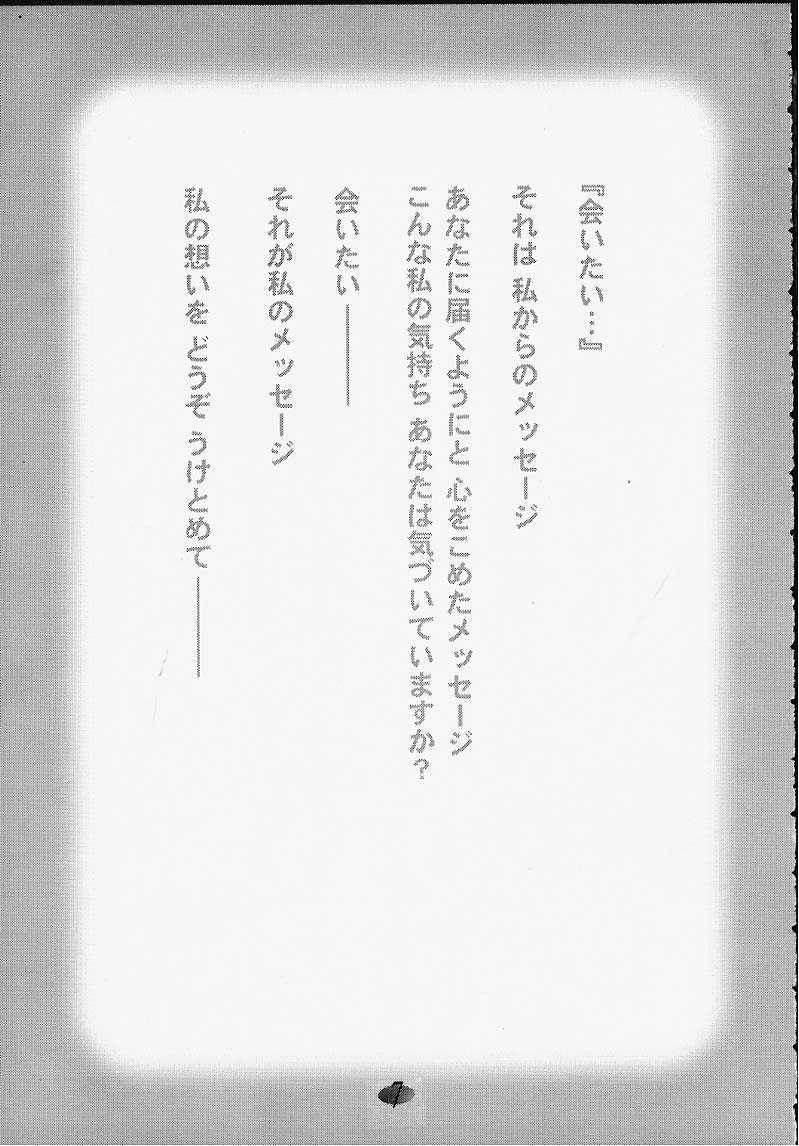 『会いたい…』
それは 私からのメッセージ
あなたに届くようにと 心をこめたメッセージ
こんな私の気持ち あなたは気づいていますか？
会いたい――――
それが私のメッセージ
私の想いを どうぞ うけとめて――――
7